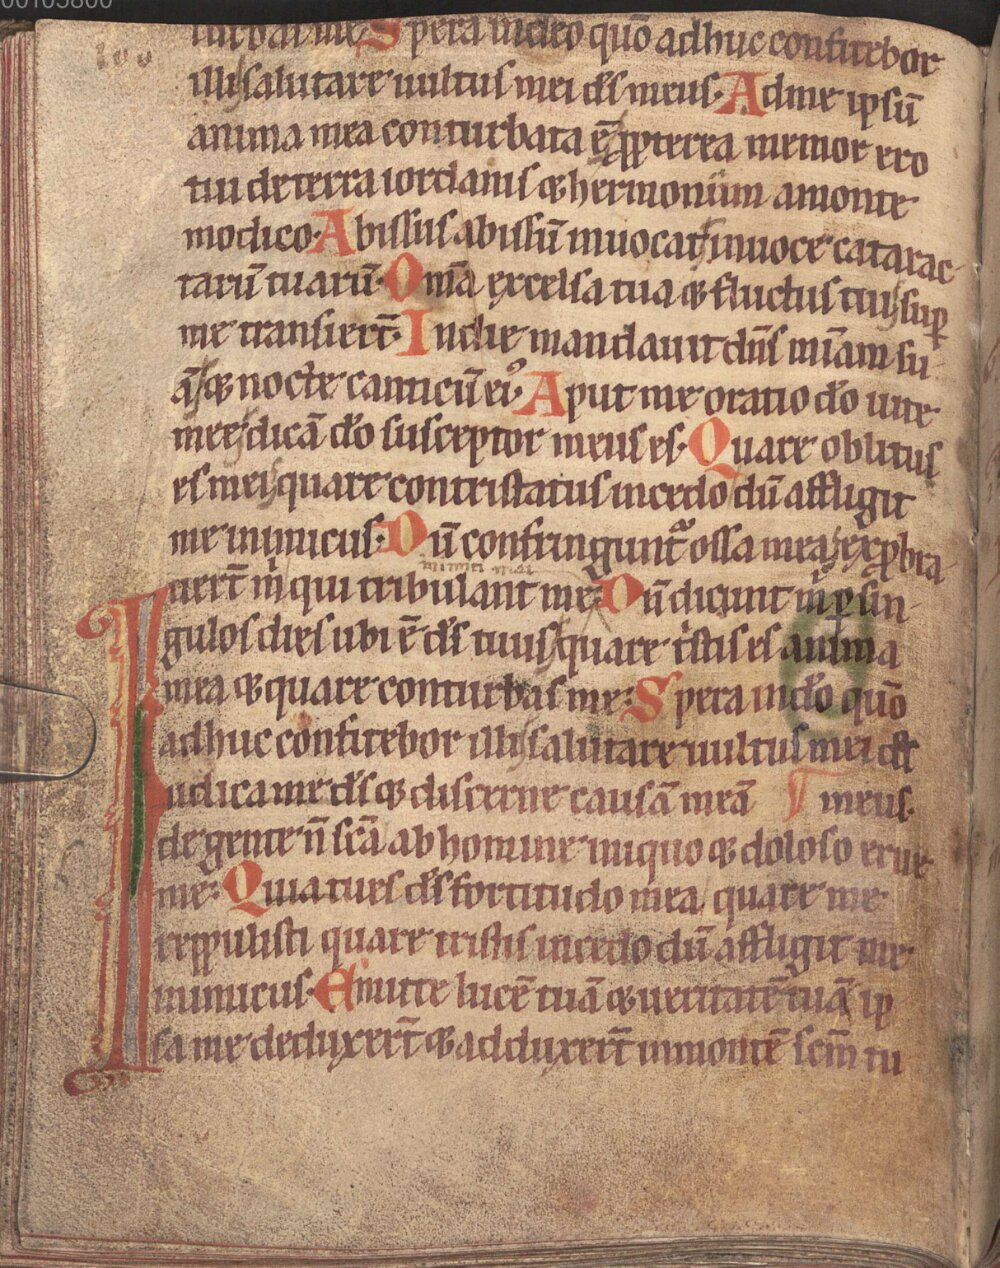 00105800
turbas me Spera indeo quō adhuc confitebor
illi salutare uultus mei ds̄ meus. Adme ipsū
anima mea conturbata ē ꝓpterea memor ero
tui deterra iordanis ⁊ hermoniim amonte
modico. Abissus abissū inuocat inuoce catarac-
tarū tuarū. Om̄a excelsa tua ⁊ fluctus tui suꝑ
me transierт̄. Indie mandauit dn̄s mīam su-
ā ⁊ nocte canticū ei⁹. Aput me oratio dō uite
mee dicā dō susceptor meus es. Quare oblitus
es mei quare contristatus incedo dū affligit
me inimicus. Dū confringunt ossa mea exꝓbra
uert̄ m̄ qui tribulant me. Dū dicunt m̄ ꝑ sin-
gulos dies ubi ē ds̄ tuus quare tristis es anima
mea ⁊ quare conturbas me. Spera indō quō
adhuc confitebor illi salutare uultus mei ⁊ ds̄
Iudica me ds̄ ⁊ discerne causā meā meus.
de gente n̄ scā ab homine iniquo ⁊ doloso erue
me. Quia tu es ds̄ fortitudo mea, quare me
reppulisti quare tristis incedo dū affligit me
inimicus. Emitte lucē tuā ⁊ ueritatē tuā ip
sa me deduxert̄ ⁊ adduxert̄ inmontē scm̄ tu